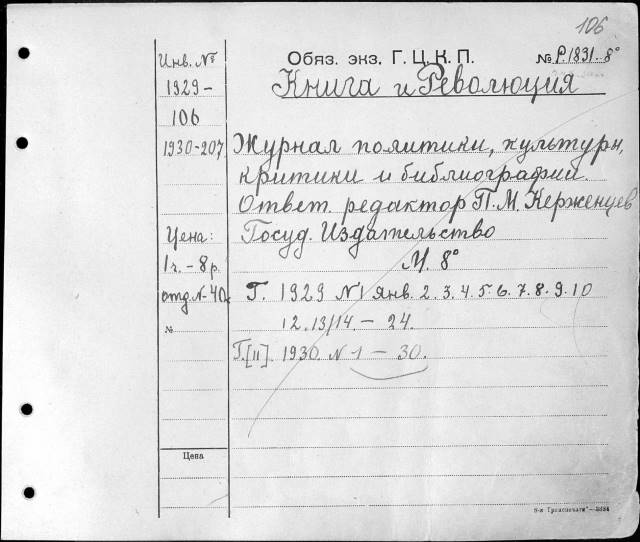 106
Инв. №
Обяз. экз. Г. Ц. К. П.
№ Р.1831.8°
1929-
Книга и Революция
106
1930-207
Журнал политики, культуры,
критики и библиографии.
Ответ. редактор П. М. Керженцев
Цена:
Госуд. Издательство
1г.-8р.
М. 8°
отд. N-40к
Г. 1929 №1 янв. 2. 3. 4. 5. 6. 7. 8. 9. 10
№
12. 13/14. - 24.
Г. [II]. 1930. N 1 - 30.
Цена